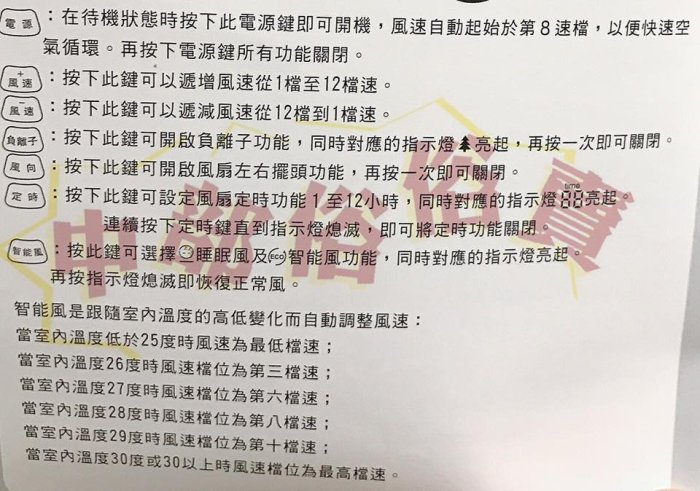 電源：在待機狀態時按下此電源鍵即可開機，風速自動起始於第8速檔，以便快速空
氣循環。再按下電源鍵所有功能關閉。
+風速：按下此鍵可以遞增風速從1檔至12檔速。
-風速：按下此鍵可以遞減風速從12檔到1檔速。
負離子：按下此鍵可開啟負離子功能，同時對應的指示燈亮起，再按一次即可關閉。
風向：按下此鍵可開啟風扇左右擺頭功能，再按一次即可關閉。
定時：按下此鍵可設定風扇定時功能1至12小時，同時對應的指示燈time 88亮起。
連續按下定時鍵直到指示燈熄滅，即可將定時功能關閉。
智能風：按此鍵可選擇睡眠風及ECO智能風功能，同時對應的指示燈亮起。
再按指示燈熄滅即恢復正常風。
智能風是跟隨室內溫度的高低變化而自動調整風速：
當室內溫度低於25度時風速為最低檔速；
當室內溫度26度時風速檔位為第三檔速；
當室內溫度27度時風速檔位為第六檔速；
當室內溫度28度時風速檔位為第八檔速；
當室內溫度29度時風速檔位為第十檔速；
當室內溫度30度或30以上時風速檔位為最高檔速。
中部俗俗賣